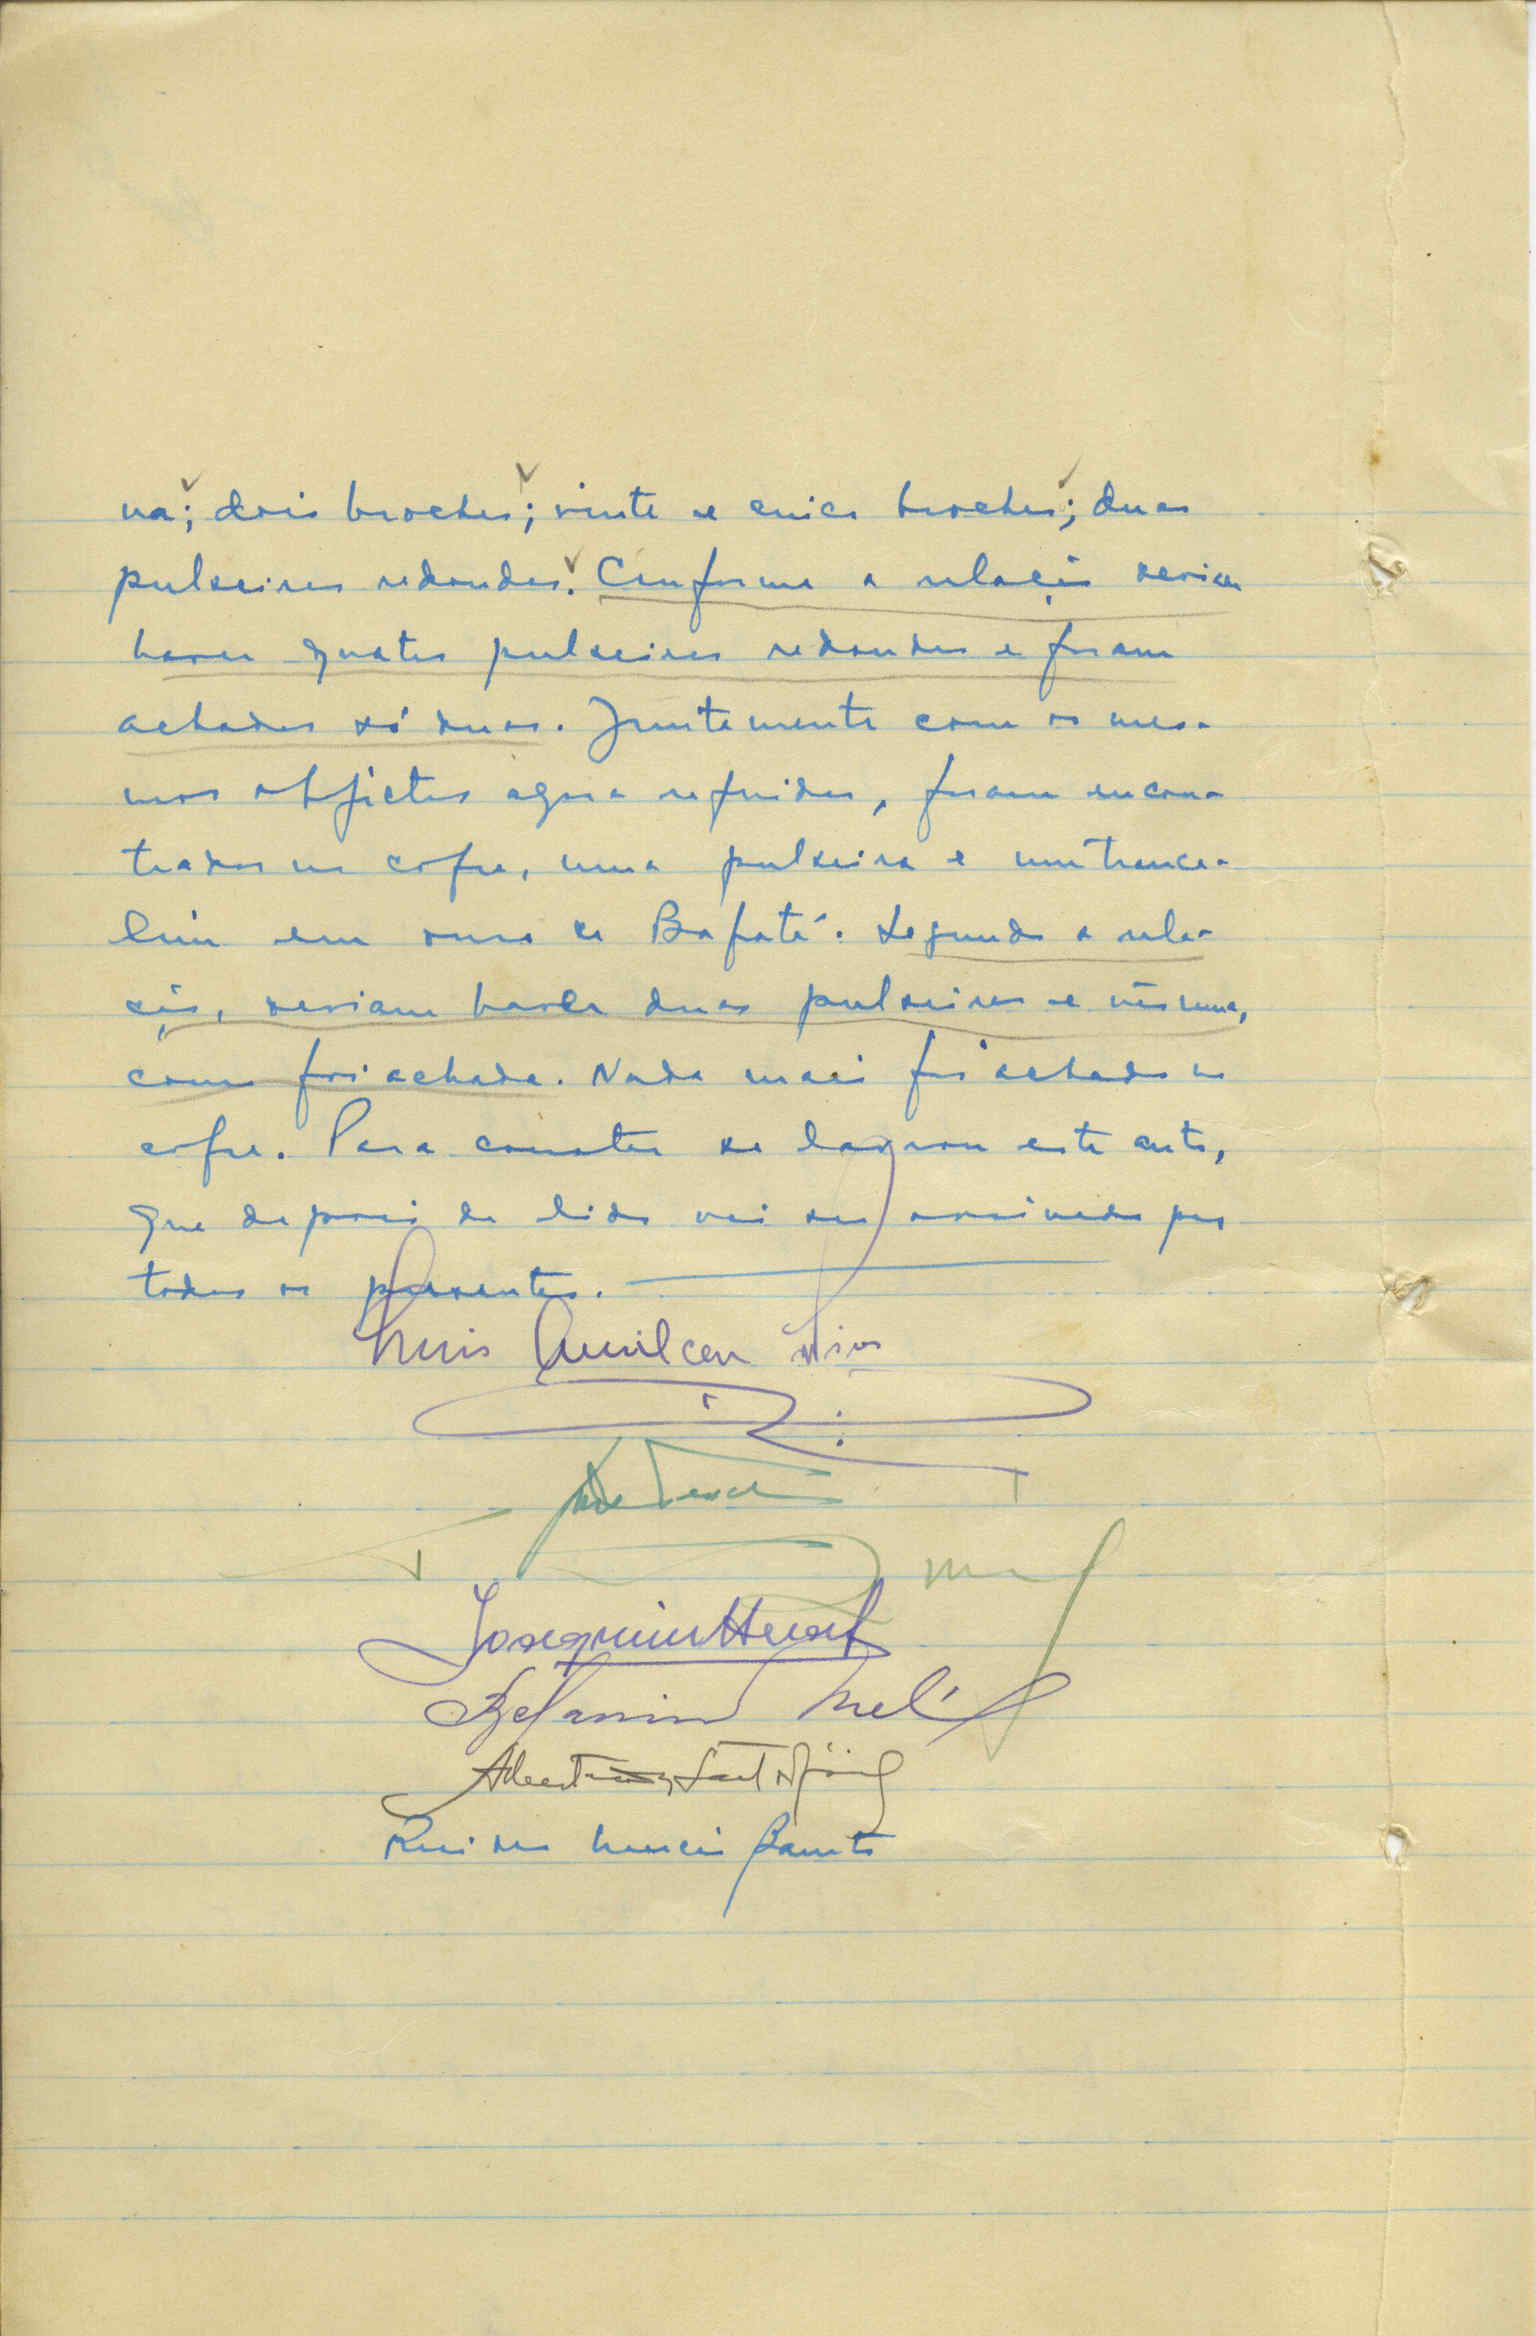 na; dois broches; vinte e cinco broches; duas
pulseiras redondas. Conforme a relação deviam
haver quatro pulseiras redondas e foram
achadas só duas. Juntamente com os mes-
mos objectos agora referidos, foram encon-
trados no cofre, uma pulseira e um trance-
lim em ouro de Bafatá. Segundo a rela-
ção, deviam haver duas pulseiras e não uma,
como foi achada. Nada mais foi achado no
cofre. Para constar se lavrou este auto,
que depois de lido vai ser assinado por
todos os presentes.
Luis
Joaquim
Benjamim
Rui Barreto